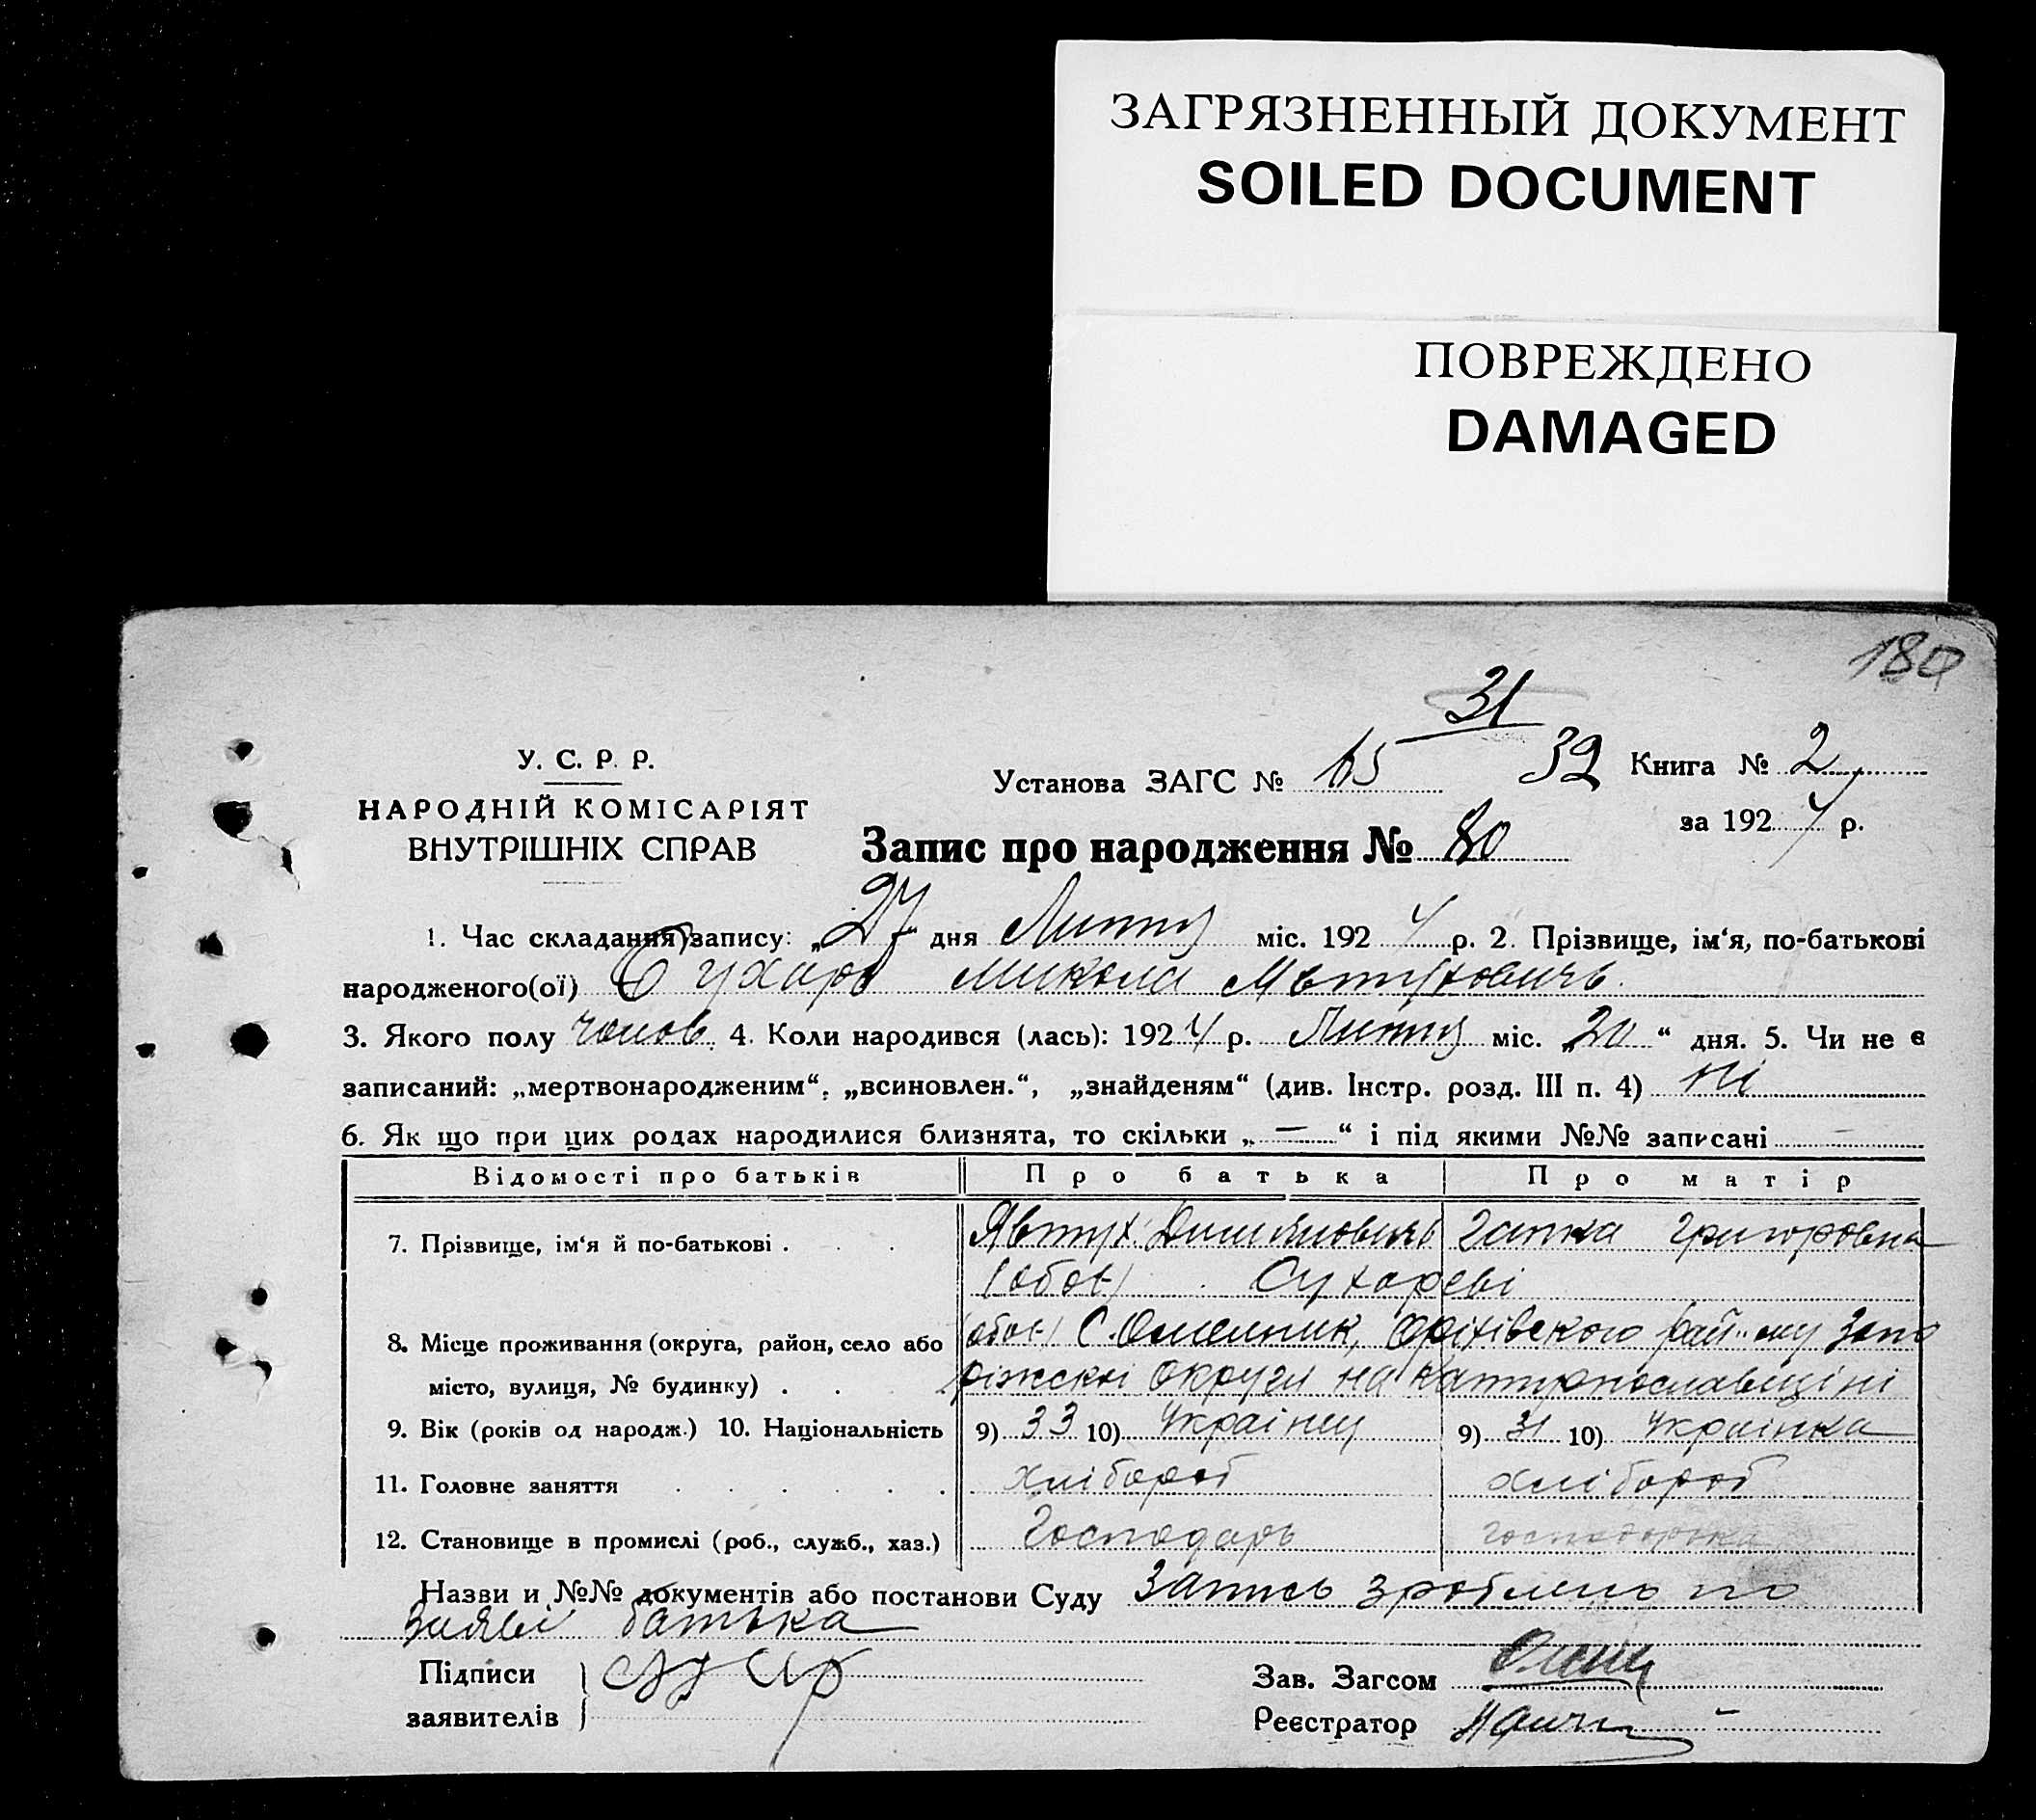 ЗАГРЯЗНЕННЫЙ ДОКУМЕНТ
SOILED DOCUMENT
ПОВРЕЖДЕНО
DAMAGED
180
31
У. С. Р. Р.
НАРОДНІЙ КОМІСАРІЯТ
ВНУТРІШНІХ СПРАВ
Установа ЗАГС № 65 32 Книга № 2
за 192 4 р.
Запис про народження № 80
1. Час складання запису: „27 дня Лютого міс. 192 4 р. 2. Прізвище, ім‘я, по-батькові
народженого(ої) Сухарь Микола Явтухович
3. Якого полу чолов. 4. Коли народився (лась): 192 4 р. Лютого міс. „20“ дня. 5. Чи не є
записаний: „мертвонародженим“, „всиновлен.“, „знайденям“ (див. Інстр. розд. III п. 4) ні
6. Як що при цих родах народилися близнята, то скільки „ — “ і під якими №№ записані —
Відомості про батьків Про батька Про матір
7. Прізвище, ім‘я й по-батькові . . . Явтух Григоровна
(обоє) Сухареві
8. Місце проживання (округа, район, село або (обоє) С. Омельник, Оріхівского рай-ну Запо
місто, вулиця, № будинку) . . . ріжскої округи на Катеринославщіні
9. Вік (років од народж.) 10. Національність 9) 33 10) Українец 9) 31 10) Українка
11. Головне заняття . . . . . . хлібороб хлібороб
12. Становище в промислі (роб., служб., хаз.) Господарь господарька
Назви и №№ документів або постанови Суду Запись зроблено по
заяві батька
Підписи
заявителів } Сухар
Зав. Загсом
Реєстратор